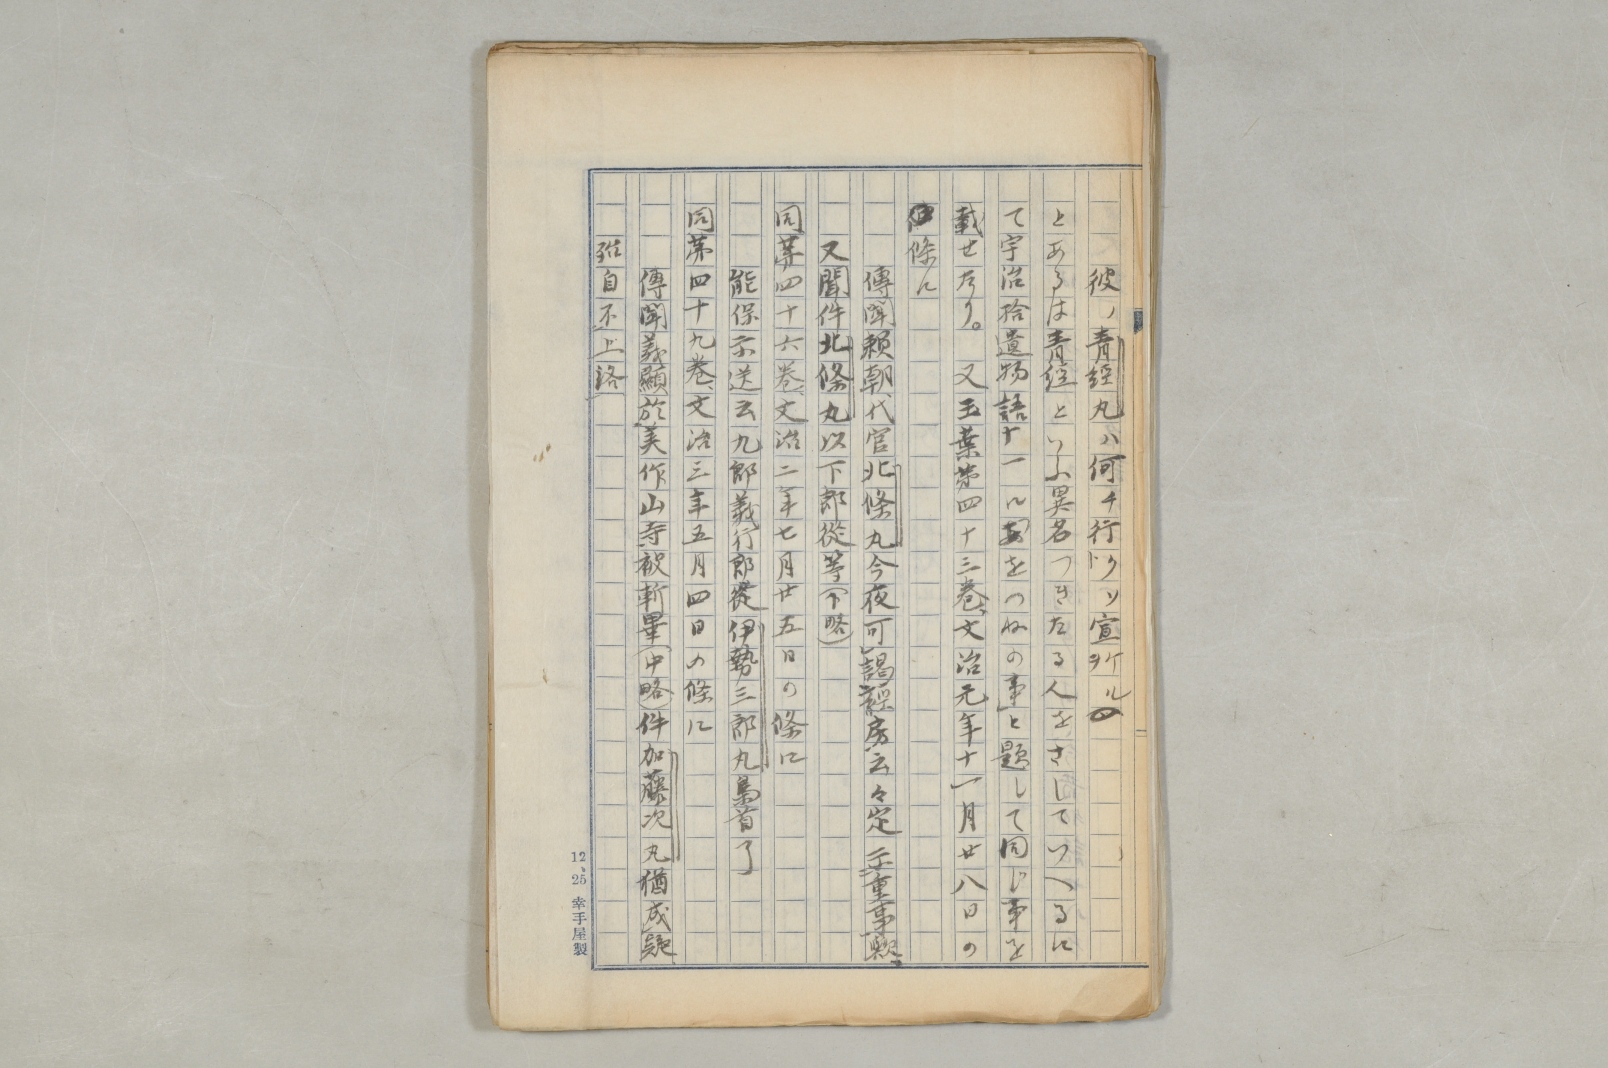 彼ノ青經丸ハ何チ行クゾ宣ヒケル
とあるは青經といふ異名つきたる人をさしていへるに
て宇治拾遺物語十一ルあをつねの事と題して同じ事を
載せたり。　又玉葉第四十三卷、文治元年十一月廿八日の
條に
傳聞頼朝代官北條丸今夜可謁經房云々定示重事歟、
又聞件北條丸以下郎從等(下略)
同第四十六卷、文治二年七月廿五日の條に
能保示送云九郎義行郎從伊勢三郎丸梟首了
同第四十九卷、文治三年五月四日の條に
傳聞義顯於美作山寺被斬畢(中略)件加藤次丸猶成疑
殆自不上洛
12、25 幸手屋製